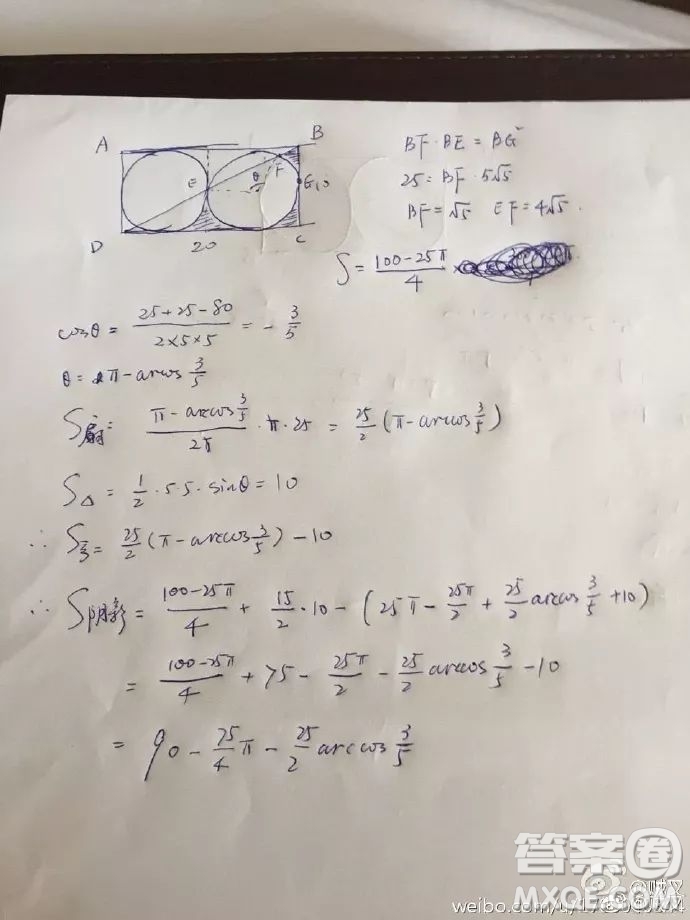 A B
BF · BE = BG²
E θ F G 10
25 = BF · 5√5
BF = √5 EF = 4√5.
D 20 C
S = (100-25π)/4
cosθ = (25+25-80)/(2×5×5) = -3/5
θ = π - arccos 3/5
S扇 = (π - arccos 3/5)/(2π) · π · 25 = 25/2 (π - arccos 3/5)
S△ = 1/2 · 5 · 5 · sinθ = 10
∴ S弓 = 25/2 (π - arccos 3/5) - 10
∴ S阴影 = (100-25π)/4 + 15/2 · 10 - (25π - 25π/2 + 25/2 arccos 3/5 + 10)
= (100-25π)/4 + 75 - 25π/2 - 25/2 arccos 3/5 - 10
= 90 - 75/4 π - 25/2 arccos 3/5
答案圈
MXQE.COM
weibo.com/u/17